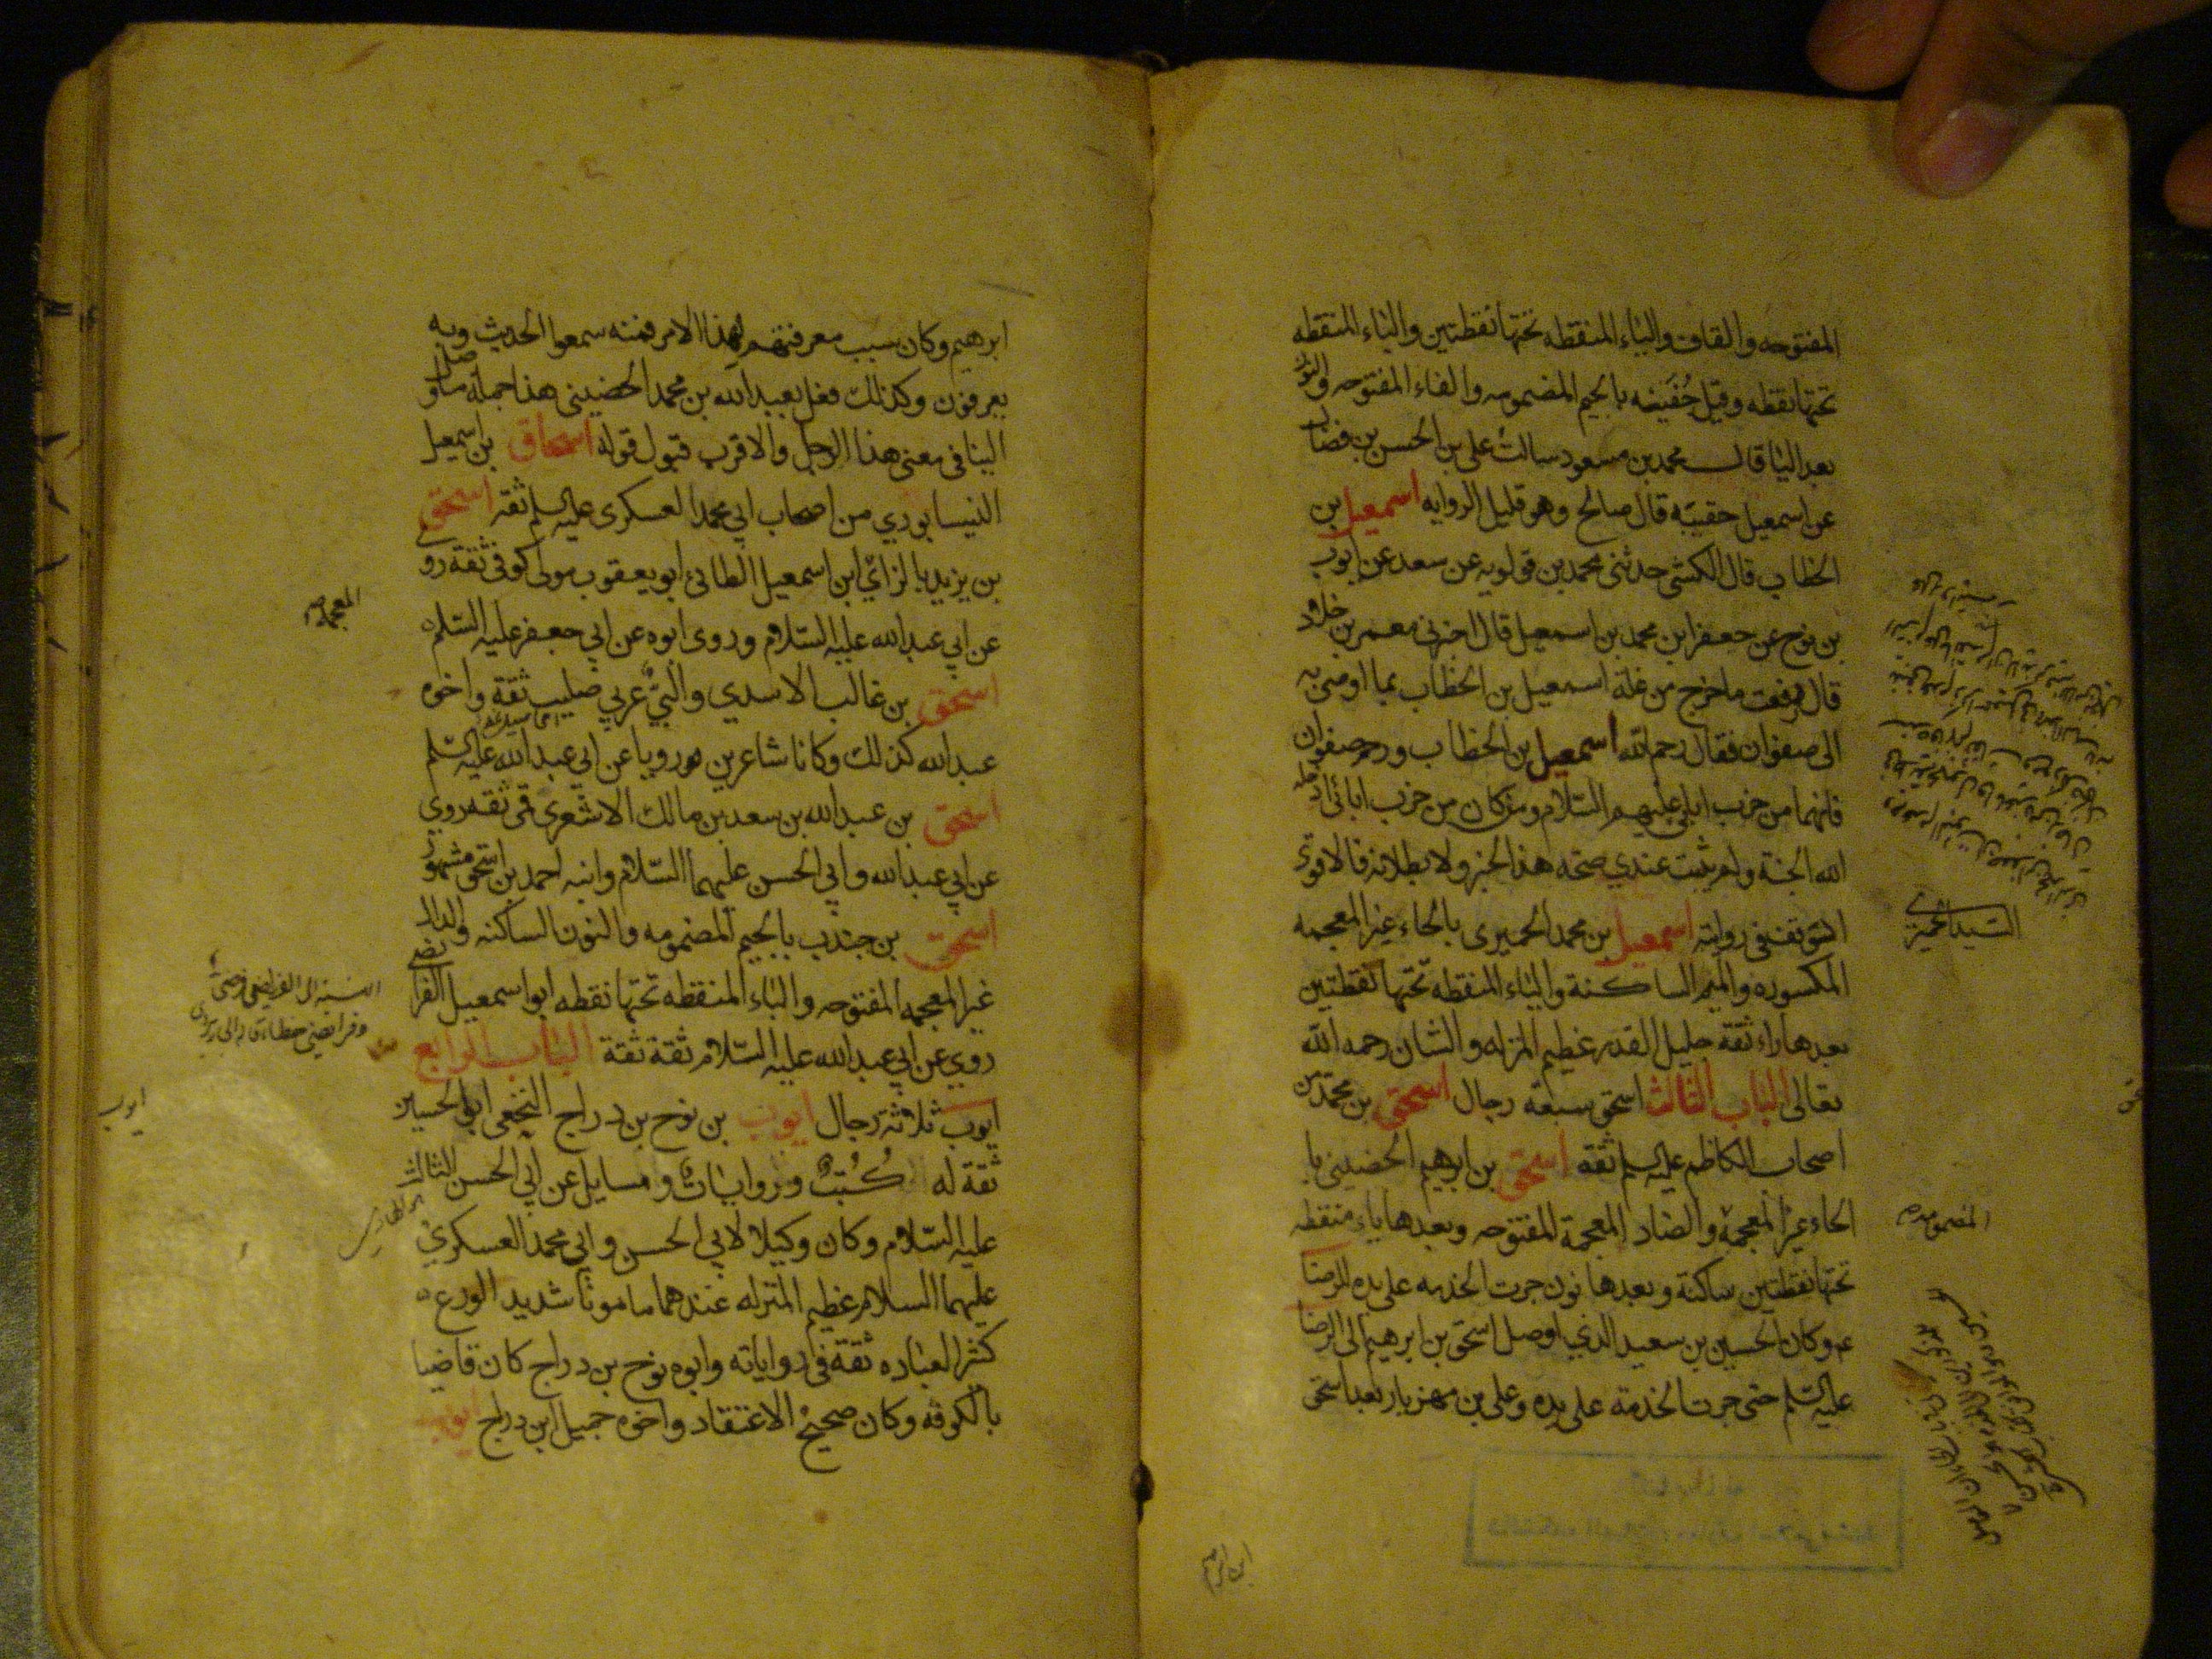 المفتوحه والقاف والياء المنقطه تحتها نقطتين والباء المنقطه
تحتها نقطه وقيل جُفَينه بالجيم المضمومه والفاء المفتوحه والنون
بعد اليا قال محمد بن مسعود سالت على بن الحسن بن فضال
عن اسمعيل حقيبه قال صالح وهو قليل الروايه اسمعيل بن
الخطاب قال الكشى حدثنى محمد بن قولويه عن سعد عن ايوب
بن نوح عن جعفر ابن محمد بن اسمعيل قال اخبرنى معمر بن خلاد
قال رفعت ما خرج من غلة اسمعيل بن الخطاب بما اوصى به
الى صفوان فقال رحم الله اسمعيل بن الخطاب ورحم صفوان
فانهما من حزب ابائى عليهم السلام ومن كان من حزب ابائى ادخله
الله الجنة ولم يثبت عندي صحة هذا الخبر ولا بطلانه فالاقوى
التوقف فى روايته اسمعيل بن محمد الحميرى بالحاء غير المعجمه
المكسوره والميم الساكنة والياء المنقطه تحتها نقطتين
بعدها راء ثقة جليل القدر عظيم المنزله والشان رحمه الله
تعالى الباب الثالث اسحق سبعة رجال اسحق بن محمد من
اصحاب الكاظم عليه السلم ثقه اسحق بن ابرهيم الحضينى با
الحاء غير المعجمة والضاد المعجمة المفتوحه وبعدها ياء منقطه
تحتها نقطتين ساكنة وبعدها نون جرت الخدمه على يده للرضا
ع وكان الحسين بن سعيد الذي اوصل اسحق بن ابرهيم الى الرضا
عليه السلم حتى جرت الخدمة على يده وعلى بن مهزيار بعد اسحق
السيد الحميرى
المضمومه
ابن ابرهيم
ابرهيم وكان سبب معرفتهم لهذا الامر فمنه سمعوا الحديث وبه
يعرفون وكذلك فعل بعبد الله بن محمد الحضينى هذا جملة ما وصل
الينا فى معنى هذا الرجل والاقرب قبول قوله اسحاق بن اسمعيل
النيسابوري من اصحاب ابي محمد العسكرى عليه السلم ثقه اسحق
بن يزيد بالزائ ابن اسمعيل الطائى ابو يعقوب مولى كوفى ثقة روى
عن ابي عبد الله عليه السلام وروى ابوه عن ابي جعفر عليه السلم
اسحق بن غالب الاسدي والبيّ عربي صليب ثقة واخوه
عبد الله كذلك وكانا شاعرين ورويا عن ابي عبد الله عليه السلم
اسحق بن عبد الله بن سعد بن مالك الاشعرى قمى ثقه روي
عن ابي عبد الله وابي الحسن عليهما السلام وابنه احمد بن اسحق مشهور
اسحق بن جندب بالجيم المضمومه والنون الساكنه والدال
غير المعجمه المفتوحه والباء المنقطه تحتها نقطه ابو اسمعيل الفرائضى
روي عن ابي عبد الله عليه السلام ثقة ثقة الباب الرابع
ايوب ثلاثة رجال ايوب بن نوح بن دراج النخعى ابو الحسين
ثقة له كُتبٌ وروايات ومسايل عن ابي الحسن الثالث
عليه السلام وكان وكيلا لابي الحسن وابي محمد العسكري
عليهما السلام عظيم المنزله عندهما مامونا شديد الورع
كثير العباده ثقة فى رواياته وابوه نوح بن دراج كان قاضيا
بالكوفه وكان صحيح الاعتقاد واخوه جميل ابن دراج ايوب
المعجمه
ايوب